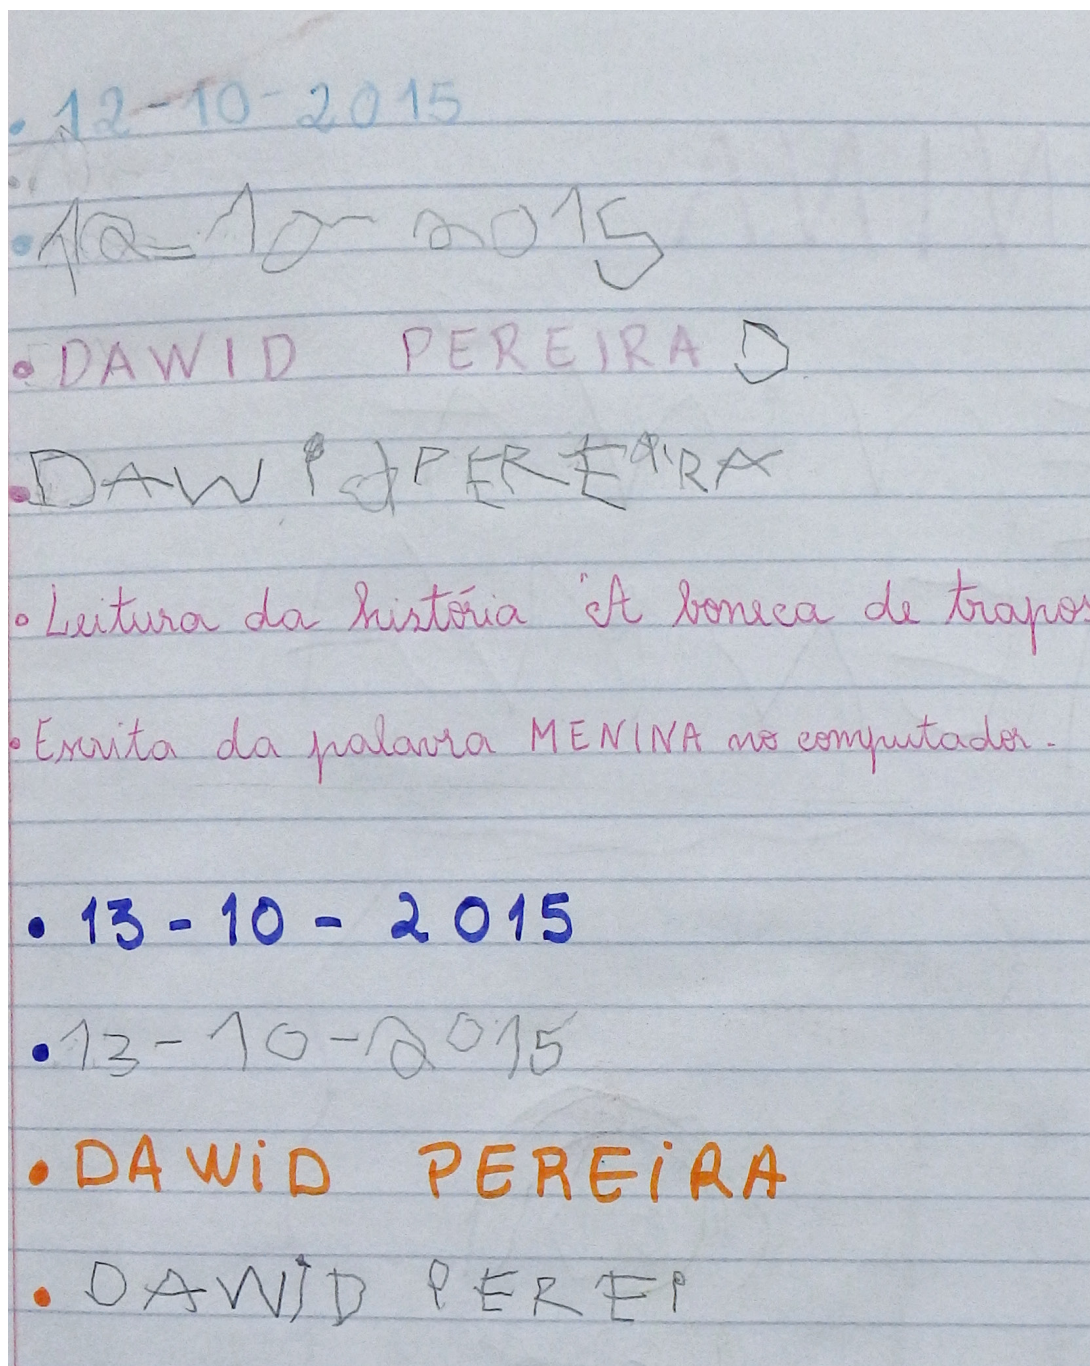 12-10-2015
12-10-2015
DAWID PEREIRA D
DAWid PEREiRA
Leitura da história "A boneca de trapos
Escrita da palavra MENINA no computador.
13-10-2015
13-10-2015
DAWiD PEREiRA
DAWiD PEREi